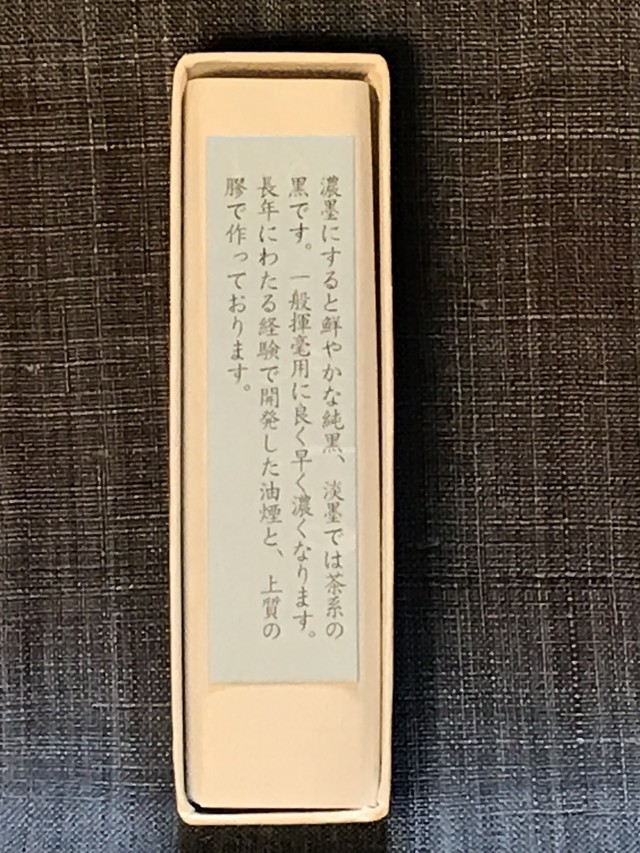 濃墨にすると鮮やかな純黒、淡墨では茶系の
黒です。一般揮毫用に良く早く濃くなります。
長年にわたる経験で開発した油煙と、上質の
膠で作っております。